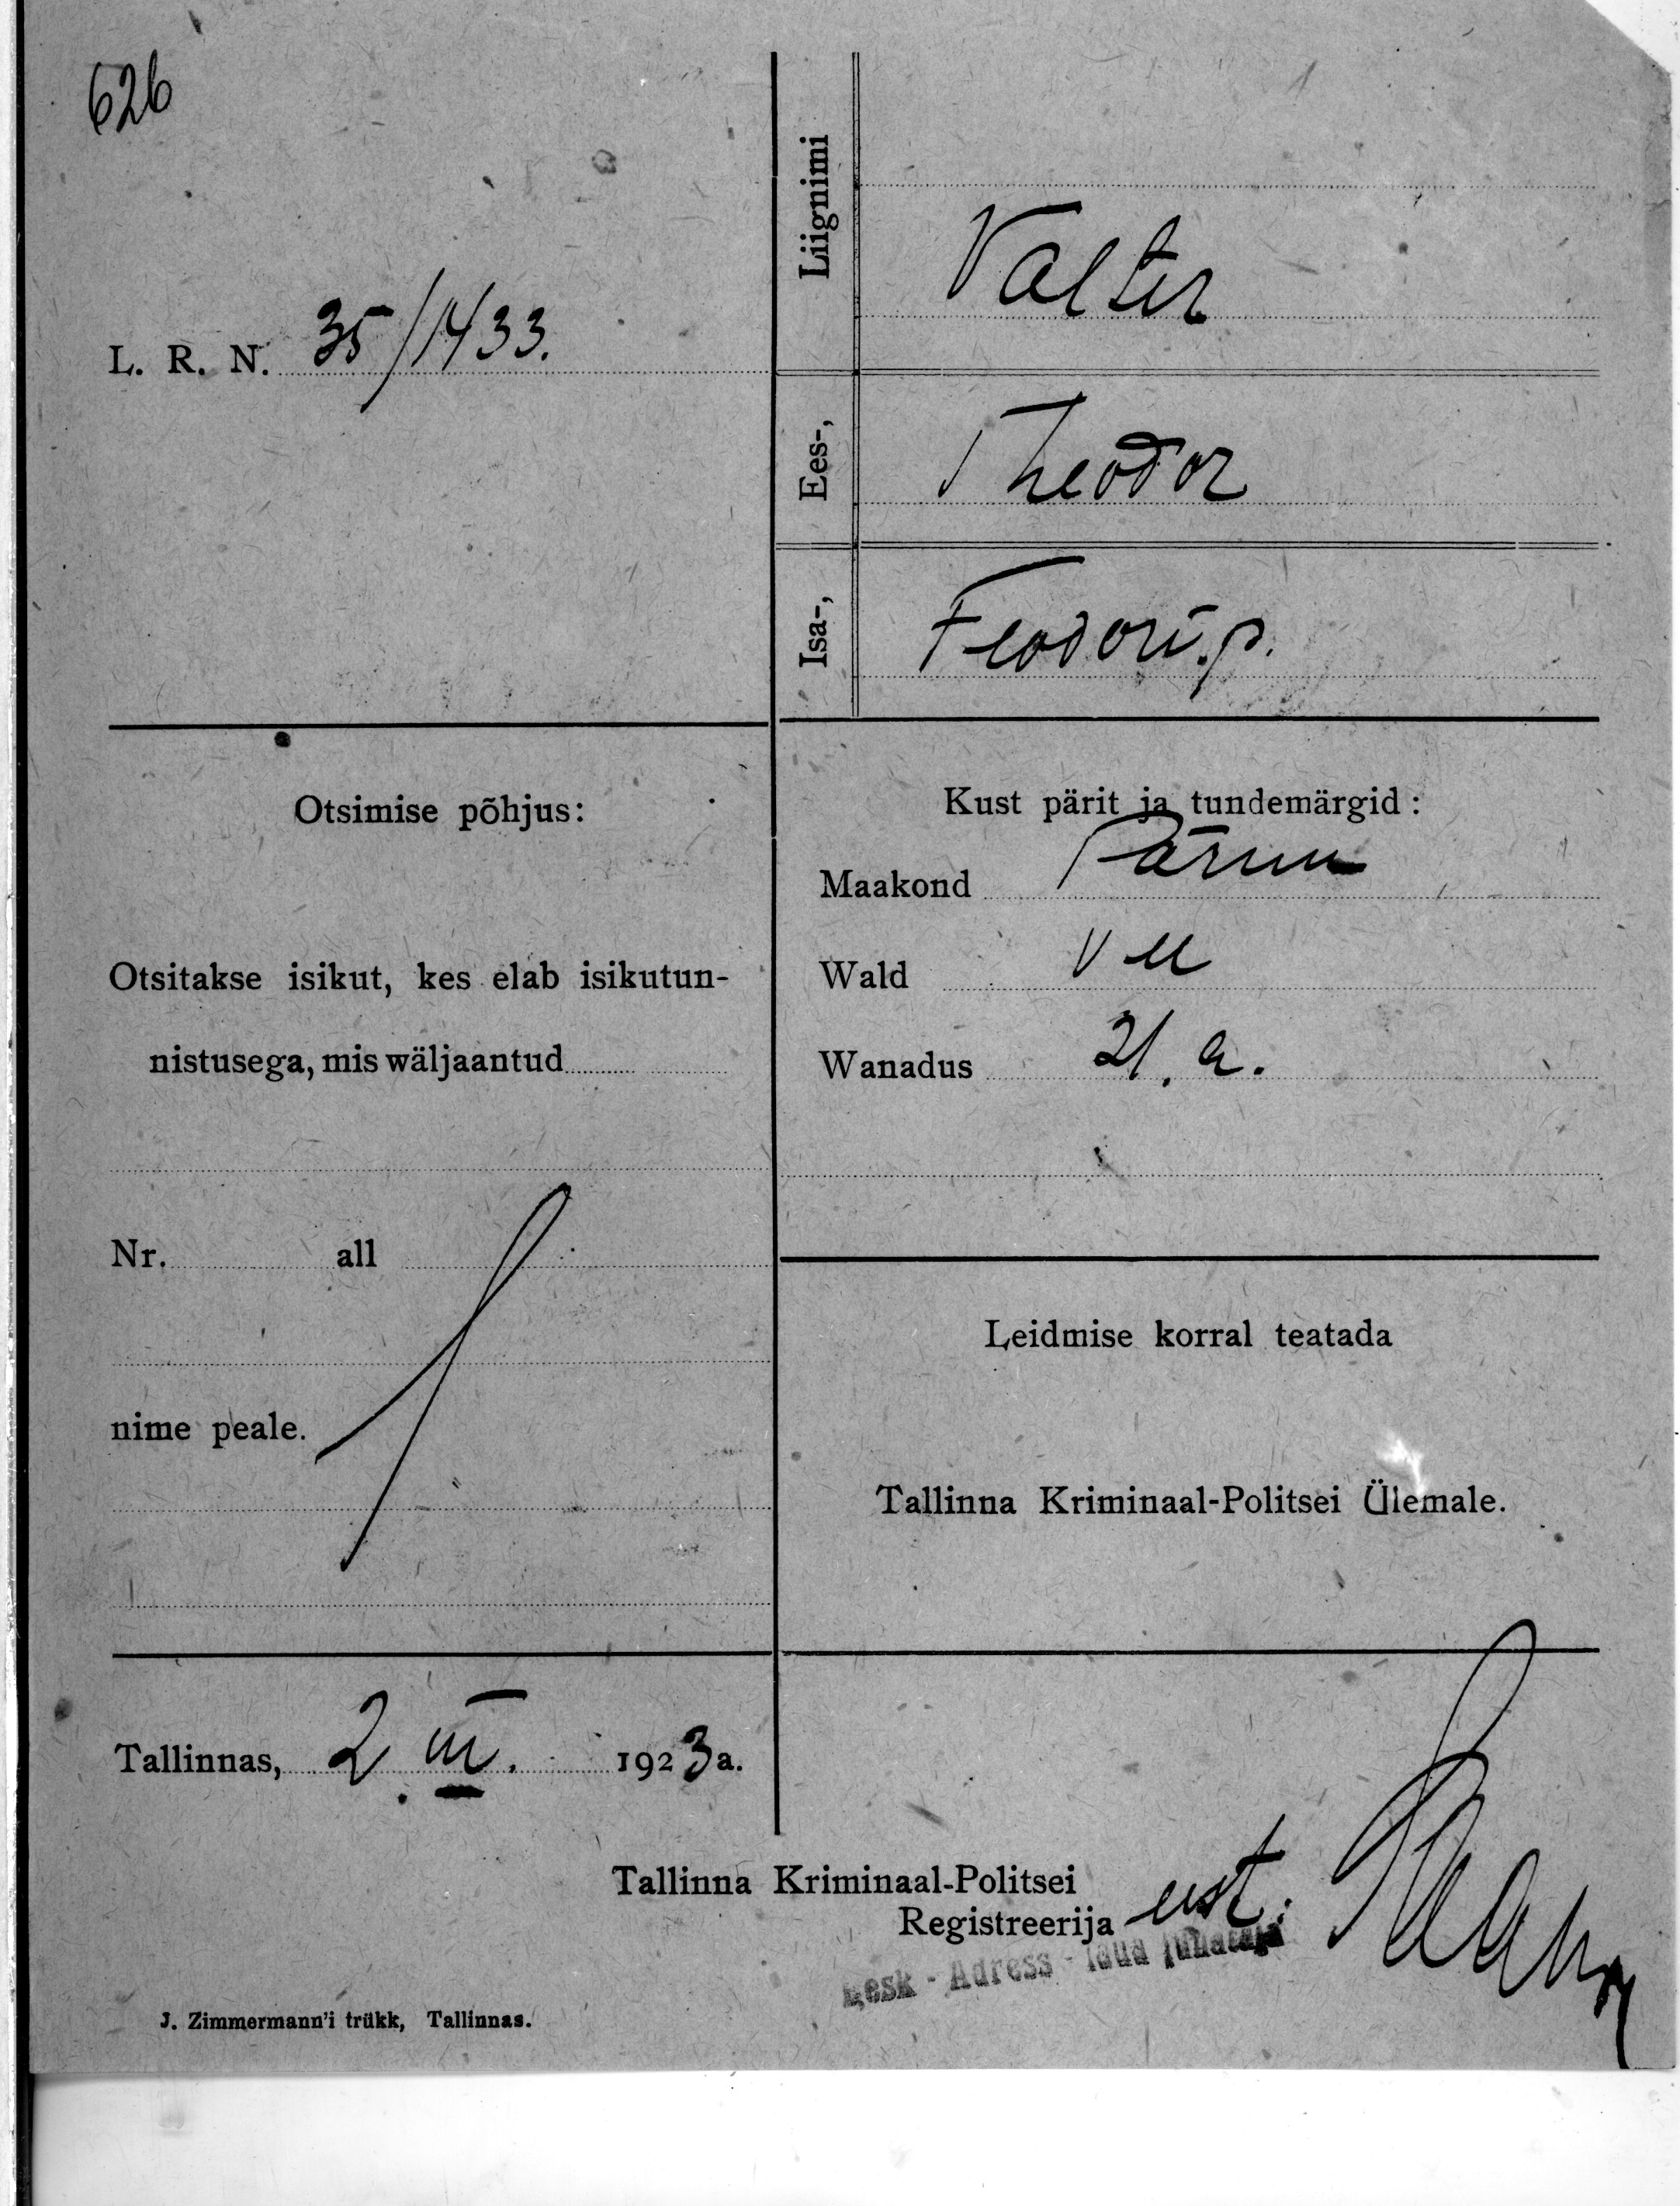 626
L. R. N. 35/1433.
Liignimi
Valter
Ees-,
Theodor
Isa-,
Feodori p.
Otsimise põhjus:
Otsitakse isikut, kes elab isikutun-
nistusega, mis wäljaantud
Nr. all
nime peale.
Kust pärit ja tundemärgid:
Maakond Pärnu
Wald
Wanadus 21. a.
Leidmise korral teatada
Tallinna Kriminaal-Politsei Ülemale.
Tallinnas, 2. III. 1923 a.
Tallinna Kriminaal-Politsei
Registreerija eest:
Kesk - Adress - laua juhataja
J. Zimmermann'i trükk, Tallinnas.